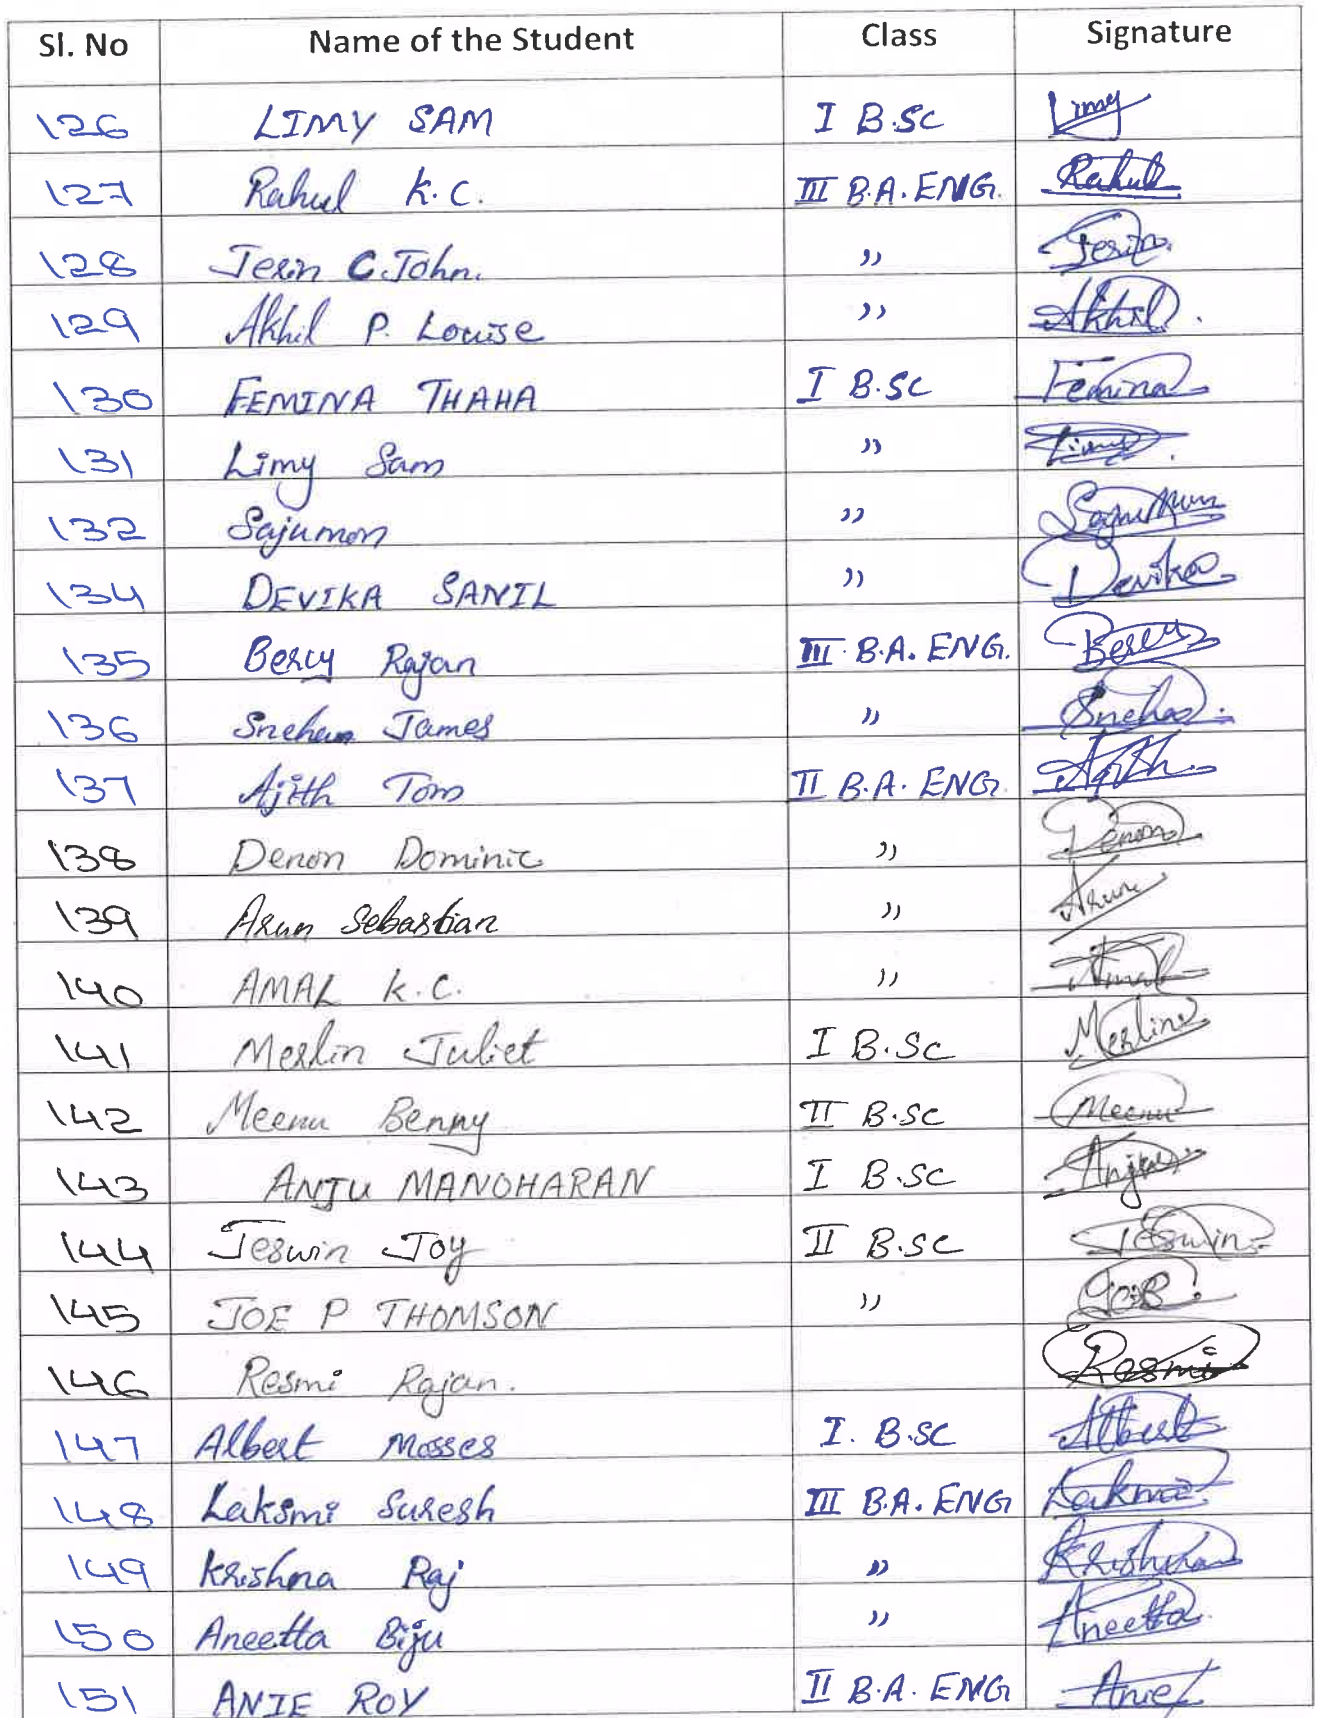 Sl. No Name of the Student Class Signature
126 LIMY SAM I B.SC Limy
127 Rahul K.C. III B.A. ENG. Rahul
128 Jerin C John. ,, Jerin.
129 Akhil P. Louise ,, Akhil.
130 FEMINA THAHA I B.SC Femina
131 Limy Sam ,, Limy
132 Sajumon ,, Sajumon
134 DEVIKA SANIL ,, Devika
135 Bercy Rajan III B.A. ENG. Bercy
136 Sneha James ,, Sneha
137 Ajith Tom II B.A. ENG. Ajith
138 Denon Dominic ,, Denon
139 Arun Sebastian ,, Arun
140 AMAL K.C. ,, Amal
141 Merlin Juliet I B.Sc Merlin
142 Meenu Benny II B.SC Meenu
143 ANJU MANOHARAN I B.SC Anju
144 Jeswin Joy II B.SC Jeswin
145 JOE P THOMSON ,,
146 Resmi Rajan. Resmi
147 Albert Mosses I. B.SC Albert
148 Laksmi Suresh III B.A. ENG Lakmi
149 Krishna Raj ,, Krishna
150 Aneetta Biju ,, Aneetta
151 ANIE ROY II B.A. ENG Anie